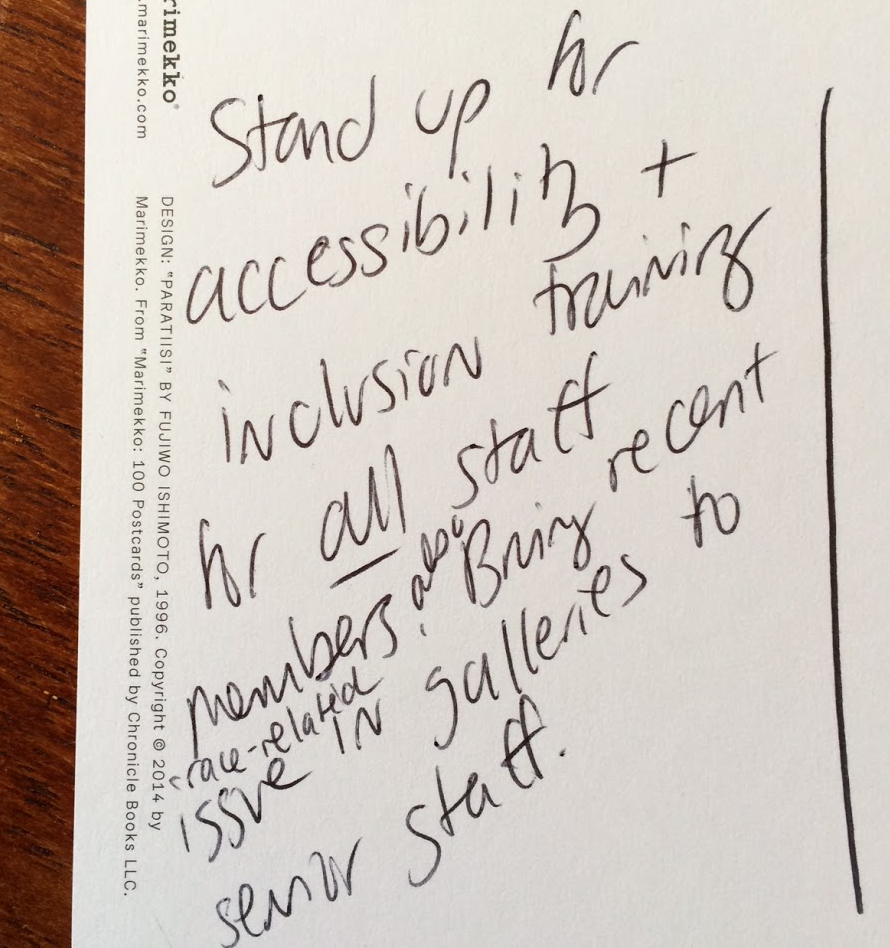 rimekko®
.marimekko.com
DESIGN: "PARATIISI" BY FUJIWO ISHIMOTO, 1996. Copyright © 2014 by
Marimekko. From "Marimekko: 100 Postcards" published by Chronicle Books LLC.
Stand up for
accessibility +
inclusion training
for all staff
members. also Bring recent
race-related
issue in galleries to
senior staff.